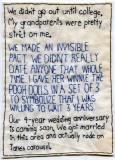 We didn't go out until college,
My grandparents were pretty
strict on me.
WE MADE AN INVISIBLE
PACT WE DIDN'T REALLY
DATE ANYONE THAT WHOLE
TIME I GAVE HER WINNIE THE
POOH DOLLS IN A SET OF 3
TO SYMBOLIZE THAT I WAS
WILLING TO WAIT 3 YEARS.
Our 4-year wedding anniversary
is coming soon. We got married
in this area and actually rode on
Jane's carousel.